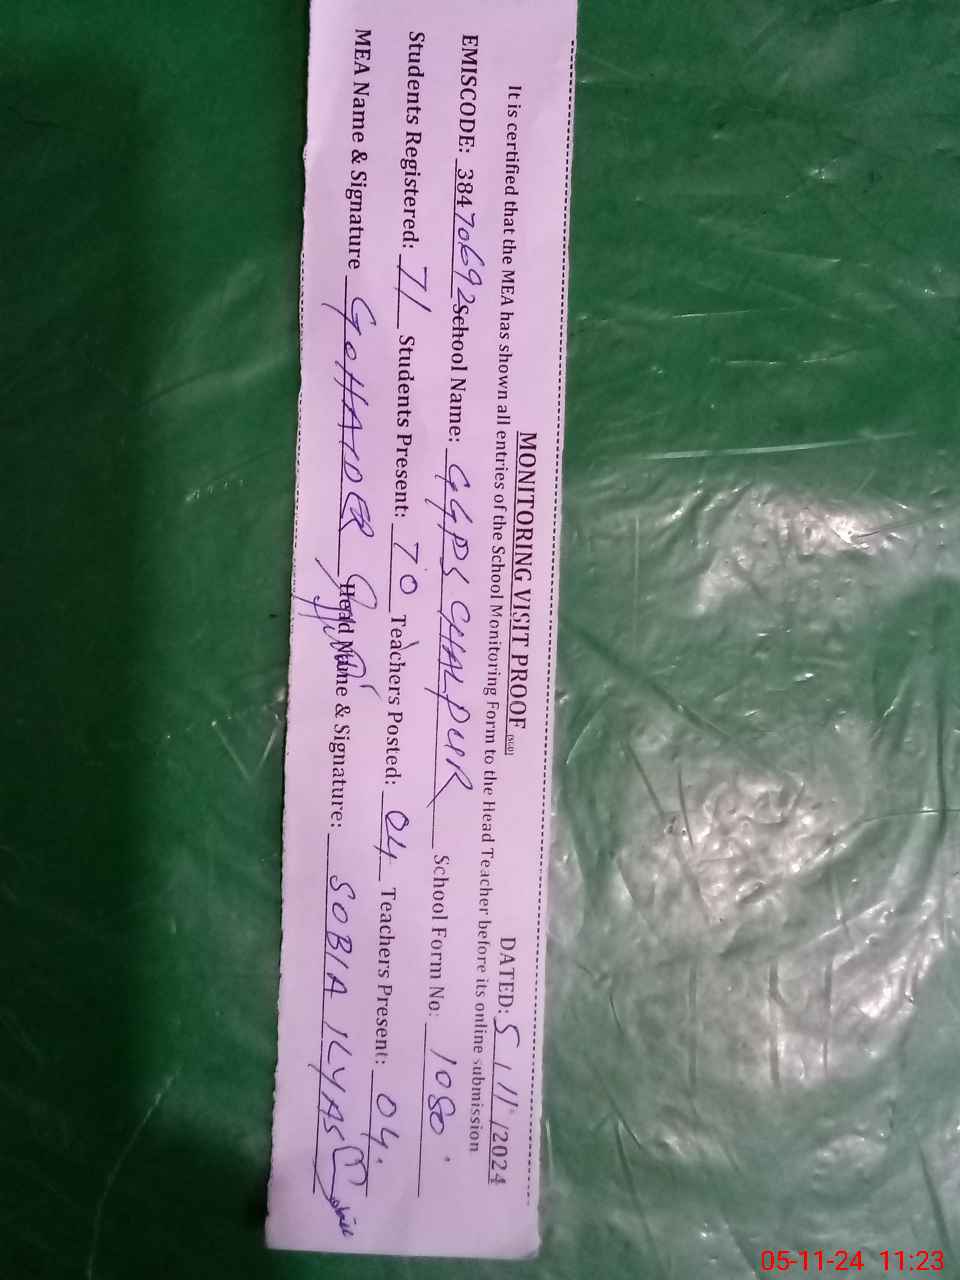 MONITORING VISIT PROOF DATED: 5/11/2024
It is certified that the MEA has shown all entries of the School Monitoring Form to the Head Teacher before its online submission
EMISCODE: 38470692 School Name: GGPS CHALPUR School Form No: 1080
Students Registered: 71 Students Present: 70 Teachers Posted: 04 Teachers Present: 04.
MEA Name & Signature G.HAIDER Head Name & Signature: SOBIA ILYAS
05-11-24 11:23